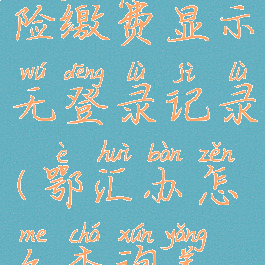 险缴费显示
wú dēng lù jì lù
无登录记录
è huì bàn zěn
(鄂汇办怎
me chá xún yǎng
么查询养